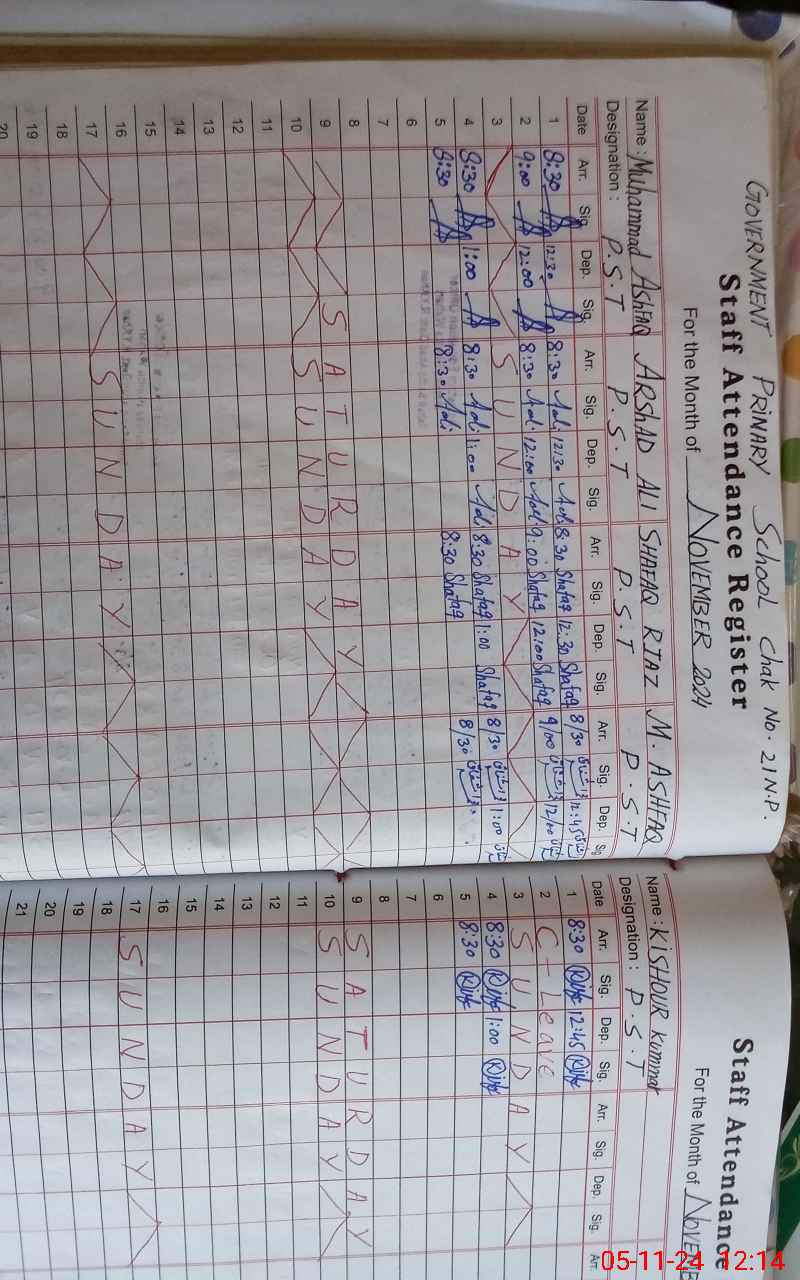 GOVERNMENT PRIMARY School Chak No. 21 N.P.
Staff Attendance Register
For the Month of NOVEMBER 2024
Name : Muhammad ASHFAQ ARSHAD ALI SHAFAQ RIAZ M. ASHFAQ
Designation : P.S.T P.S.T P.S.T P.S.T
Date Arr. Sig. Dep. Sig. Arr. Sig. Dep. Sig. Arr. Sig. Dep. Sig. Arr. Sig. Dep. Sg
1 8:30 12:30 8:30 12:30 8:30 Shafaq 12:30 Shafaq 8/30 12:45
2 9:00 12:00 8:30 12:00 9:00 Shafaq 12:00 Shafaq 9/00 12/00
3 SUNDAY
4 8:30 1:00 8:30 1:00 8:30 Shafaq 1:00 Shafaq 8/30 1:00
5 8:30 8:30 8:30 Shafaq 8/30
6
7
8
9 SATURDAY
10 SUNDAY
11
12
13
14
15
16
17 SUNDAY
18
19
20
Staff Attendance
For the Month of NOVEME
Name : KISHOUR Kummar
Designation : P.S.T
Date Arr. Sig. Dep. Sig. Arr. Sig. Dep. Sig. Arr.
1 8:30 12:45
2 C-Leave
3 SUNDAY
4 8:30 1:00
5 8:30
6
7
8
9 SATURDAY
10 SUNDAY
11
12
13
14
15
16
17 SUNDAY
18
19
20
21
05-11-24 12:14